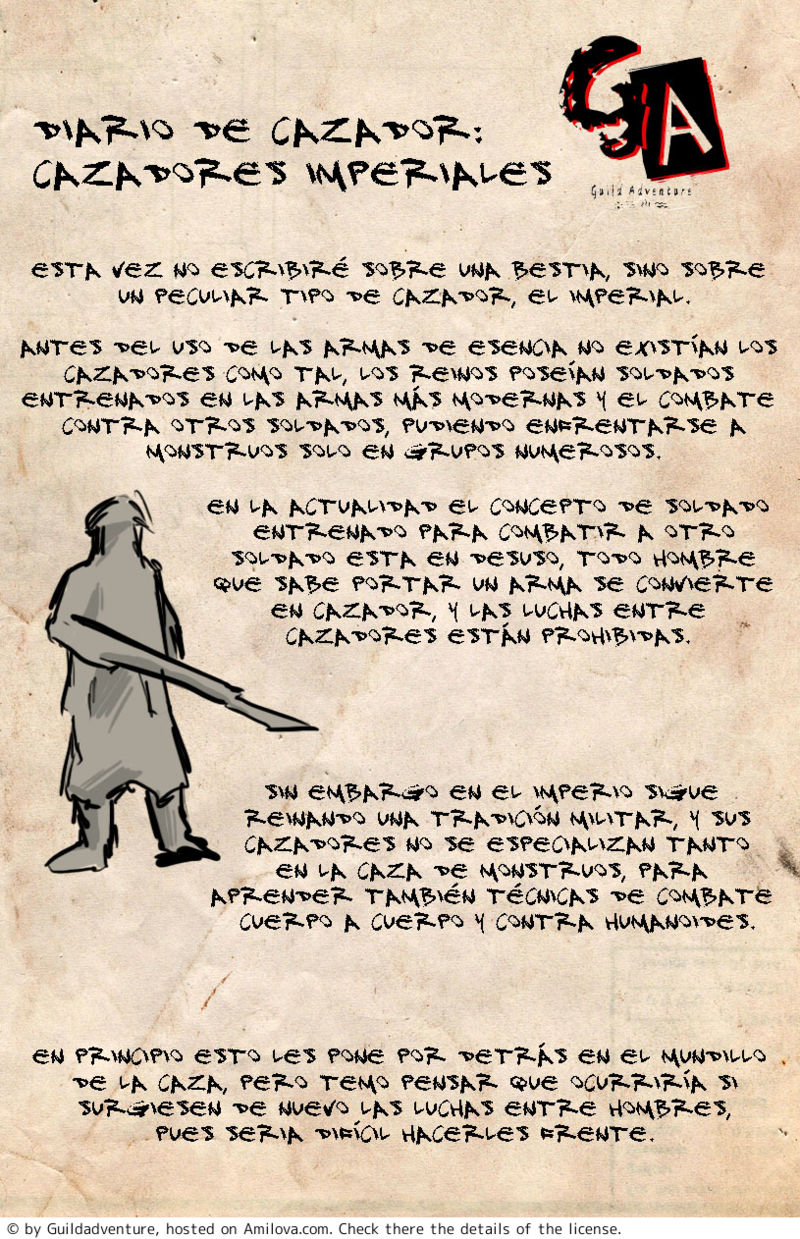 DIARIO DE CAZADOR:
CAZADORES IMPERIALES
GA
Guild Adventure
ESTA VEZ NO ESCRIBIRÉ SOBRE UNA BESTIA, SINO SOBRE
UN PECULIAR TIPO DE CAZADOR, EL IMPERIAL.
ANTES DEL USO DE LAS ARMAS DE ESENCIA NO EXISTÍAN LOS
CAZADORES COMO TAL, LOS REINOS POSEÍAN SOLDADOS
ENTRENADOS EN LAS ARMAS MÁS MODERNAS Y EL COMBATE
CONTRA OTROS SOLDADOS, PUDIENDO ENFRENTARSE A
MONSTRUOS SOLO EN GRUPOS NUMEROSOS.
EN LA ACTUALIDAD EL CONCEPTO DE SOLDADO
ENTRENADO PARA COMBATIR A OTRO
SOLDADO ESTA EN DESUSO, TODO HOMBRE
QUE SABE PORTAR UN ARMA SE CONVIERTE
EN CAZADOR, Y LAS LUCHAS ENTRE
CAZADORES ESTÁN PROHIBIDAS.
SIN EMBARGO EN EL IMPERIO SIGUE
REINANDO UNA TRADICIÓN MILITAR, Y SUS
CAZADORES NO SE ESPECIALIZAN TANTO
EN LA CAZA DE MONSTRUOS, PARA
APRENDER TAMBIÉN TÉCNICAS DE COMBATE
CUERPO A CUERPO Y CONTRA HUMANOIDES.
EN PRINCIPIO ESTO LES PONE POR DETRÁS EN EL MUNDILLO
DE LA CAZA, PERO TEMO PENSAR QUE OCURRIRÍA SI
SURGIESEN DE NUEVO LAS LUCHAS ENTRE HOMBRES,
PUES SERIA DIFÍCIL HACERLES FRENTE.
© by Guildadventure, hosted on Amilova.com. Check there the details of the license.